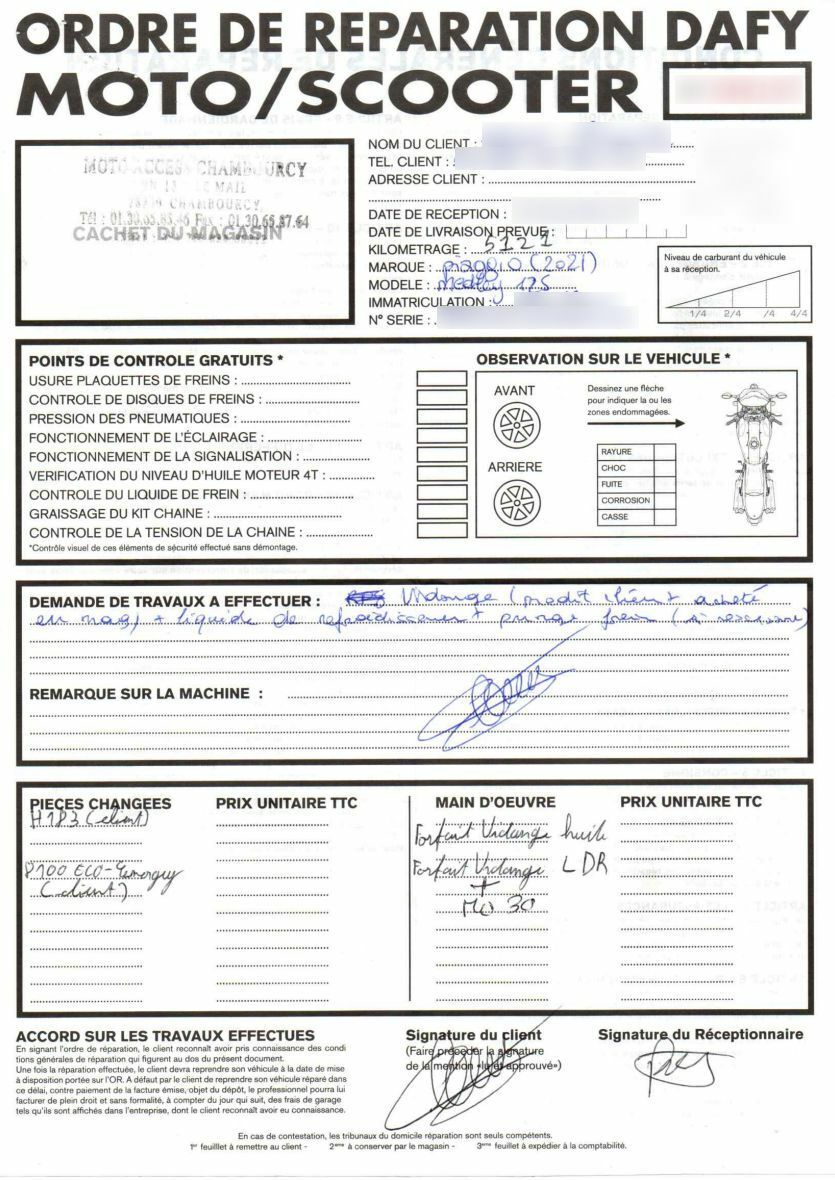 ORDRE DE REPARATION DAFY
MOTO/SCOOTER
MOTO ACCESS CHAMBOURCY
RN 13 - LE MAIL
CHAMBOURCY
Tél : 01.30. Fax : 01.30.65.87.64
CACHET DU MAGASIN
NOM DU CLIENT :
TEL. CLIENT :
ADRESSE CLIENT :
DATE DE RECEPTION :
DATE DE LIVRAISON PREVUE :
KILOMETRAGE : 5121
MARQUE : piaggio (2021)
MODELE : medley 125
IMMATRICULATION :
N° SERIE :
Niveau de carburant du véhicule
à sa réception.
1/4 2/4 /4 4/4
POINTS DE CONTROLE GRATUITS *
USURE PLAQUETTES DE FREINS :
CONTROLE DE DISQUES DE FREINS :
PRESSION DES PNEUMATIQUES :
FONCTIONNEMENT DE L'ÉCLAIRAGE :
FONCTIONNEMENT DE LA SIGNALISATION :
VERIFICATION DU NIVEAU D'HUILE MOTEUR 4T :
CONTROLE DU LIQUIDE DE FREIN :
GRAISSAGE DU KIT CHAINE :
CONTROLE DE LA TENSION DE LA CHAINE :
*Contrôle visuel de ces éléments de sécurité effectué sans démontage.
OBSERVATION SUR LE VEHICULE *
AVANT
ARRIERE
Dessinez une flèche
pour indiquer la ou les
zones endommagées.
RAYURE
CHOC
FUITE
CORROSION
CASSE
DEMANDE DE TRAVAUX A EFFECTUER : Vidange (produit client acheté
en mag) + liquide de refroidissement + purge frein (si nécessaire)
REMARQUE SUR LA MACHINE :
PIECES CHANGEES PRIX UNITAIRE TTC
H183 (client)
8100 ECO-
(client)
MAIN D'OEUVRE PRIX UNITAIRE TTC
Forfait Vidange huile
Forfait Vidange LDR
+
MO 30
ACCORD SUR LES TRAVAUX EFFECTUES
En signant l'ordre de réparation, le client reconnaît avoir pris connaissance des condi
tions générales de réparation qui figurent au dos du présent document.
Une fois la réparation effectuée, le client devra reprendre son véhicule à la date de mise
à disposition portée sur l'OR. A défaut par le client de reprendre son véhicule réparé dans
ce délai, contre paiement de la facture émise, objet du dépôt, le professionnel pourra lui
facturer de plein droit et sans formalité, à compter du jour qui suit, des frais de garage
tels qu'ils sont affichés dans l'entreprise, dont le client reconnaît avoir eu connaissance.
Signature du client
(Faire précéder la signature
de la mention «lu et approuvé»)
Signature du Réceptionnaire
En cas de contestation, les tribunaux du domicile réparation sont seuls compétents.
1er feuillet à remettre au client - 2ème à conserver par le magasin - 3ème feuillet à expédier à la comptabilité.